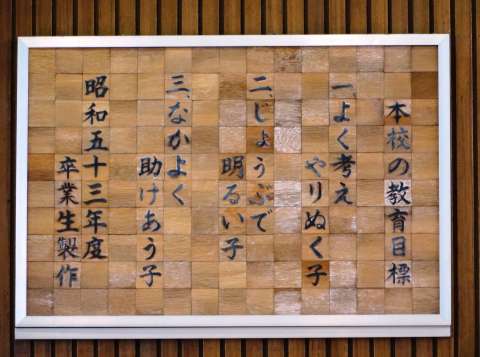 本校の教育目標
一、よく考え
やりぬく子
二、じょうぶで
明るい子
三、なかよく
助けあう子
昭和五十三年度
卒業生製作